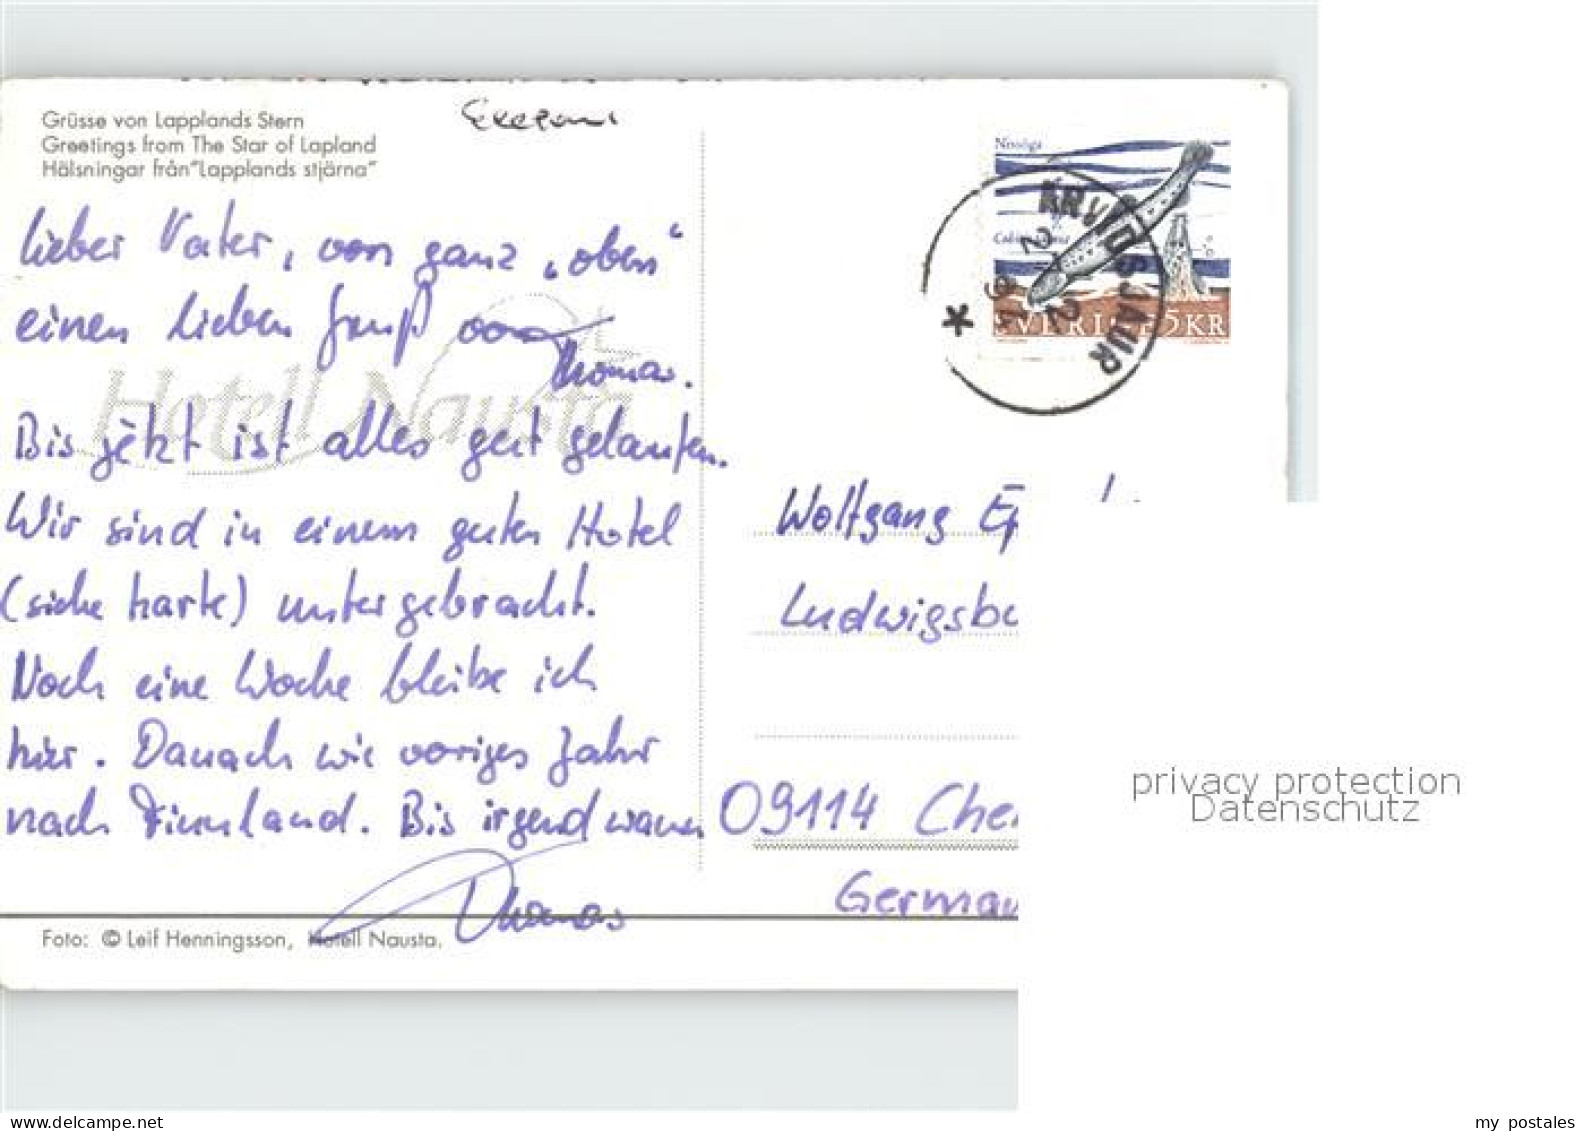 Grüsse von Lapplands Stern
Greetings from The Star of Lapland
Hälsningar från "Lapplands stjärna"
Lieber Vater, von ganz „oben“
einen lieben Gruß von
Thomas.
Bis jetzt ist alles gut gelaufen.
Wir sind in einem guten Hotel
(siehe Karte) untergebracht.
Noch eine Woche bleibe ich
hier. Danach wie voriges Jahr
nach Finnland. Bis irgendwann
Thomas
Hotell Nausta
Foto: © Leif Henningsson, Hotell Nausta.
Nissöga
SVERIGE 5KR
ARVIDSJAUR
Wolfgang Ep
Ludwigsbu
09114 Che
German
privacy protection
Datenschutz
my postales
www.delcampe.net